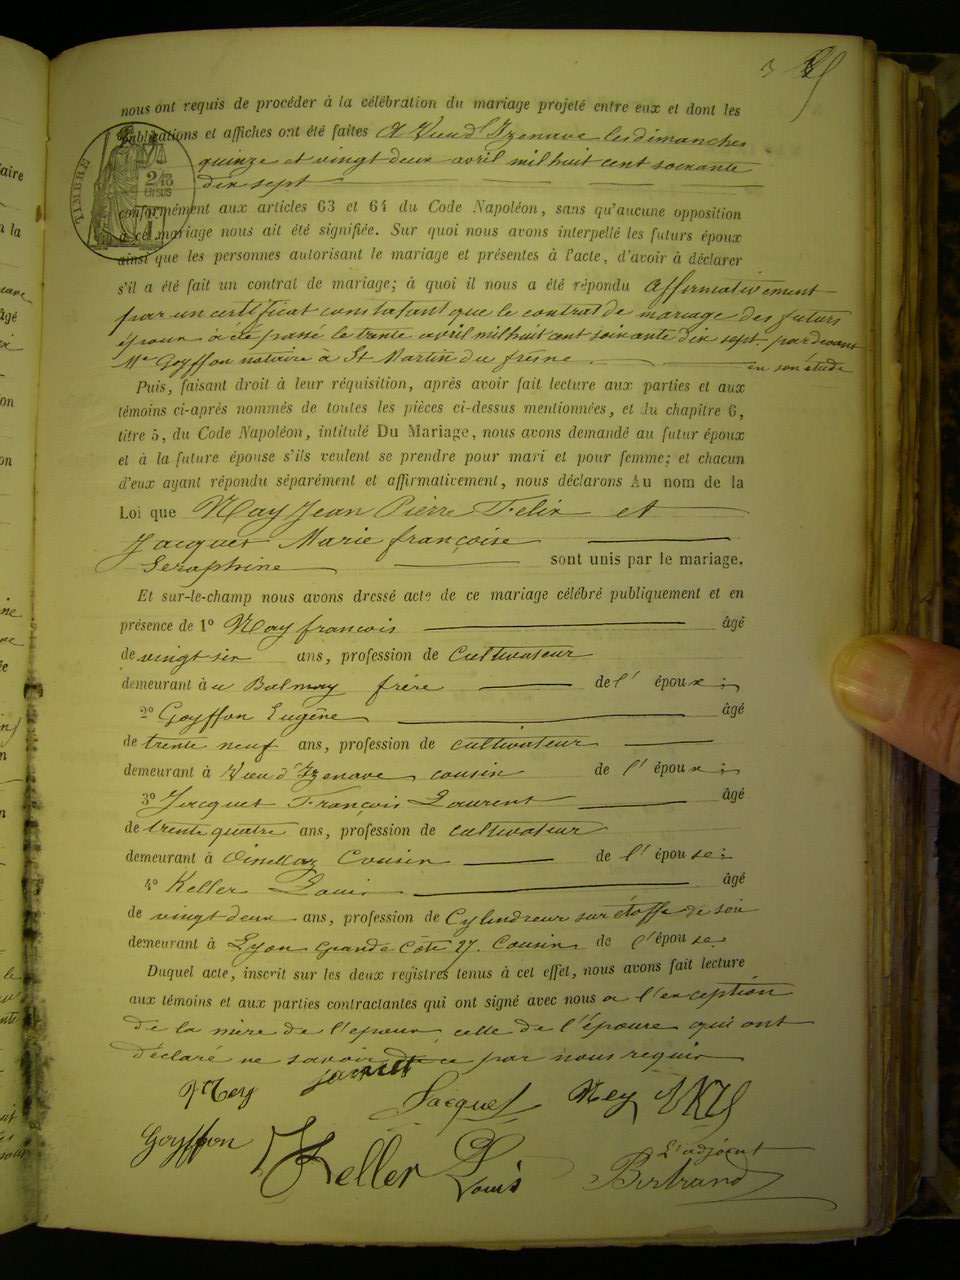 nous ont requis de procéder à la célébration du mariage projeté entre eux et dont les
publications et affiches ont été faites A Vieu d'Izenave les dimanches
quinze et vingt deux avril mil huit cent soixante
dix sept
conformément aux articles 63 et 64 du Code Napoléon, sans qu'aucune opposition
à ce mariage nous ait été signifiée. Sur quoi nous avons interpellé les futurs époux
ainsi que les personnes autorisant le mariage et présentes à l'acte, d'avoir à déclarer
s'il a été fait un contrat de mariage; à quoi il nous a été répondu affirmativement
par un certificat constatant que le contrat de mariage des futurs
époux à été passé le trente avril mil huit cent soixante dix sept par devant
Me Goyffon notaire à St Martin du fresne en son étude
Puis, faisant droit à leur réquisition, après avoir fait lecture aux parties et aux
témoins ci-après nommés de toutes les pièces ci-dessus mentionnées, et du chapitre 6,
titre 5, du Code Napoléon, intitulé Du Mariage, nous avons demandé au futur époux
et à la future épouse s'ils veulent se prendre pour mari et pour femme; et chacun
d'eux ayant répondu séparément et affirmativement, nous déclarons Au nom de la
Loi que Nay Jean Pierre Felix et
Jacquet Marie françoise
Seraphine sont unis par le mariage.
Et sur-le-champ nous avons dressé acte de ce mariage célébré publiquement et en
présence de 1º Nay francois âgé
de vingt six ans, profession de Cultivateur
demeurant à frére de l' époux;
2º Goyffon Eugène âgé
de trente neuf ans, profession de cultivateur
demeurant à Vieu d'Izenave cousin de l' époux;
3º Jacquet François Laurent âgé
de trente quatre ans, profession de cultivateur
demeurant à Cousin de l' épouse;
4º Keller Louis âgé
de vingt deux ans, profession de Cylindreur sur étoffe de soie
demeurant à Lyon grande Côte 27. Cousin de l'épouse
Duquel acte, inscrit sur les deux registres tenus à cet effet, nous avons fait lecture
aux témoins et aux parties contractantes qui ont signé avec nous a l'exception
de la mère de l'époux celle de l'épouse qui ont
déclaré ne savoir de ce par nous requis
Jacquet Ney
Goyffon Keller Louis L'adjoint
Bertrand
TIMBRE